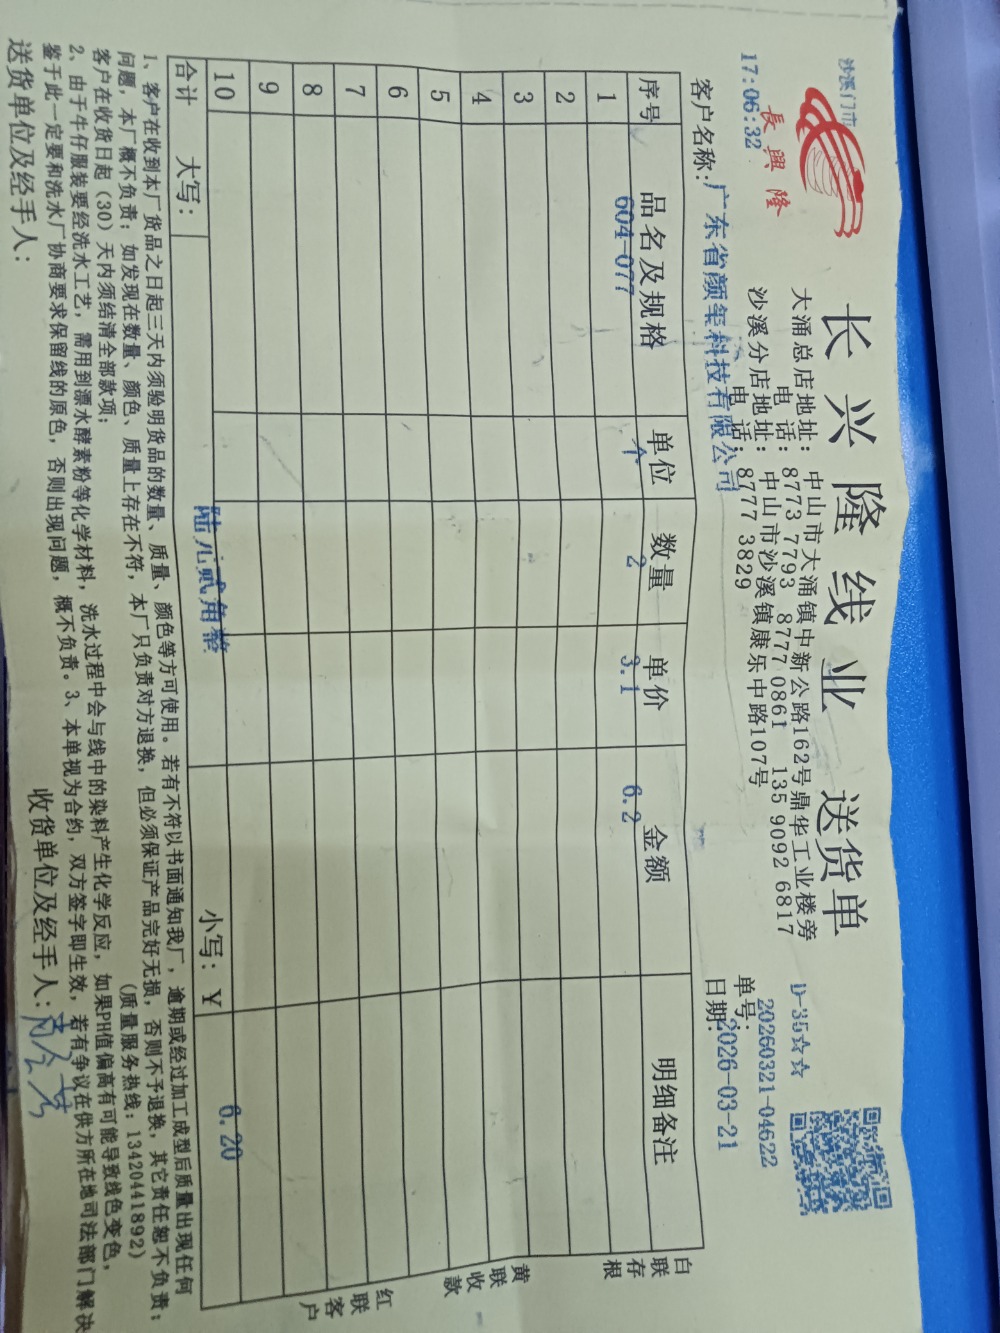 沙溪门市
17:06:32
長興隆
长兴隆线业 送货单
大涌总店地址: 中山市大涌镇中新公路162号鼎华工业楼旁
电话: 8773 7793 8777 0861 135 9092 6817
沙溪分店地址: 中山市沙溪镇康乐中路107号
电话: 8777 3829
D-35☆☆
单号: 20260321-04622
日期: 2026-03-21
客户名称: 广东省颜玺科技有限公司
序号 品名及规格 单位 数量 单价 金额 明细备注
1 604-077 个 2 3.1 6.2
2
3
4
5
6
7
8
9
10
合计 大写: 陆元贰角整 小写: ¥ 6.20
白联存根
黄联收款
红联客户
1、客户在收到本厂货品之日起三天内须验明货品的数量、质量、颜色等方可使用。若有不符以书面通知我厂，逾期或经过加工成型后质量出现任何
问题，本厂概不负责；如发现在数量、颜色、质量上存在不符，本厂只负责对方退换，但必须保证产品完好无损，否则不予退换，其它责任恕不负责；
客户在收货日起（30）天内须结清全部款项； (质量服务热线: 13420441892)
2、由于牛仔服装要经洗水工艺，需用到漂水酵素粉等化学材料，洗水过程中会与线中的染料产生化学反应，如果PH值偏高有可能导致线色变色，
鉴于此一定要和洗水厂协商要求保留线的原色，否则出现问题，概不负责。3、本单视为合约，双方签字即生效，若有争议在供方所在地司法部门解决
送货单位及经手人: 收货单位及经手人: